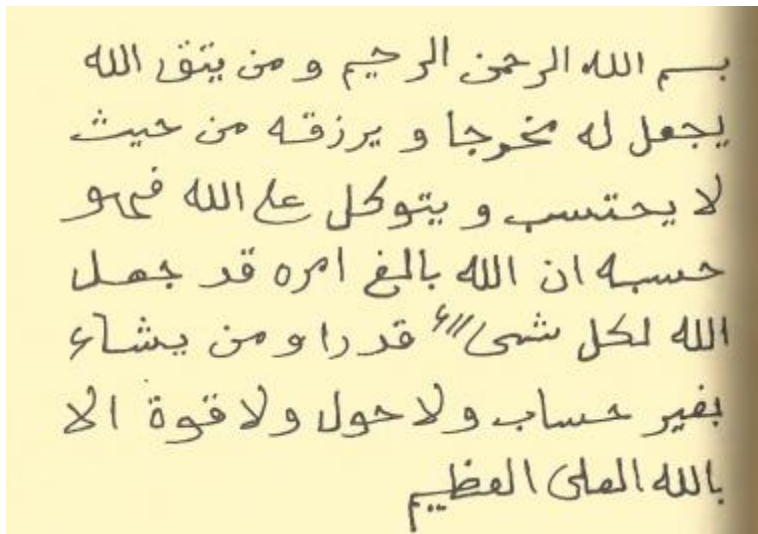 بسم الله الرحمن الرحيم و من يتق الله
يجعل له مخرجا و يرزقه من حيث
لا يحتسب و يتوكل على الله فهو
حسبه ان الله بالغ امره قد جعل
الله لكل شىء قدرا و من يشاء
بغير حساب ولا حول ولا قوة الا
بالله العلى العظيم